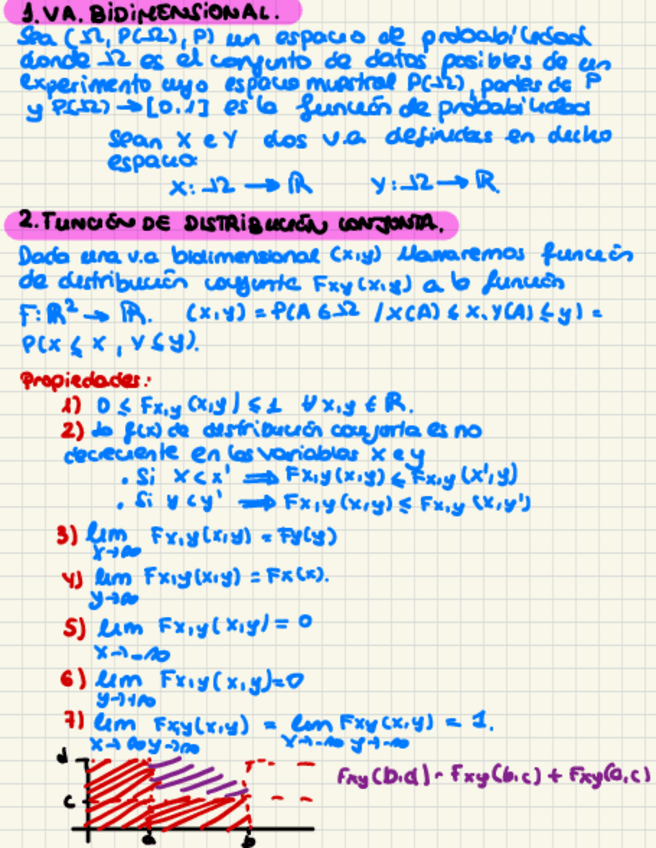 1. VA. BIDIMENSIONAL.
Sea (Ω, P(Ω), P) un espacio de probabilidad
donde Ω es el conjunto de datos posibles de un
experimento cuyo espacio muestral P(Ω), partes de P
y P(Ω) → [0,1] es la función de probabilidad
Sean X e Y dos v.a definidas en dicho
espacio:
X: Ω → ℝ Y: Ω → ℝ
2. FUNCIÓN DE DISTRIBUCIÓN CONJUNTA.
Dada una v.a bidimensional (x,y) llamaremos función
de distribución conjunta Fxy(x,y) a la función
F: ℝ² → ℝ. (x,y) = P(A ∈ Ω / X(A) ≤ x, Y(A) ≤ y) =
P(X ≤ x, Y ≤ y).
Propiedades:
1) 0 ≤ Fx,y(x,y) ≤ 1 ∀ x,y ∈ ℝ.
2) La f(x) de distribución conjunta es no
decreciente en las variables x e y
. Si x < x' ⟹ Fx,y(x,y) ≤ Fx,y(x',y)
. Si y < y' ⟹ Fx,y(x,y) ≤ Fx,y(x,y')
3) lim Fx,y(x,y) = Fy(y)
x→∞
4) lim Fx,y(x,y) = Fx(x).
y→∞
5) lim Fx,y(x,y) = 0
x→-∞
6) lim Fx,y(x,y)=0
y→-∞
7) lim Fx,y(x,y) = lim Fxy(x,y) = 1.
x→∞ y→∞ x→-∞ y→-∞
d
Fxy(b,d) - Fxy(b,c) + Fxy(a,c)
c
a b